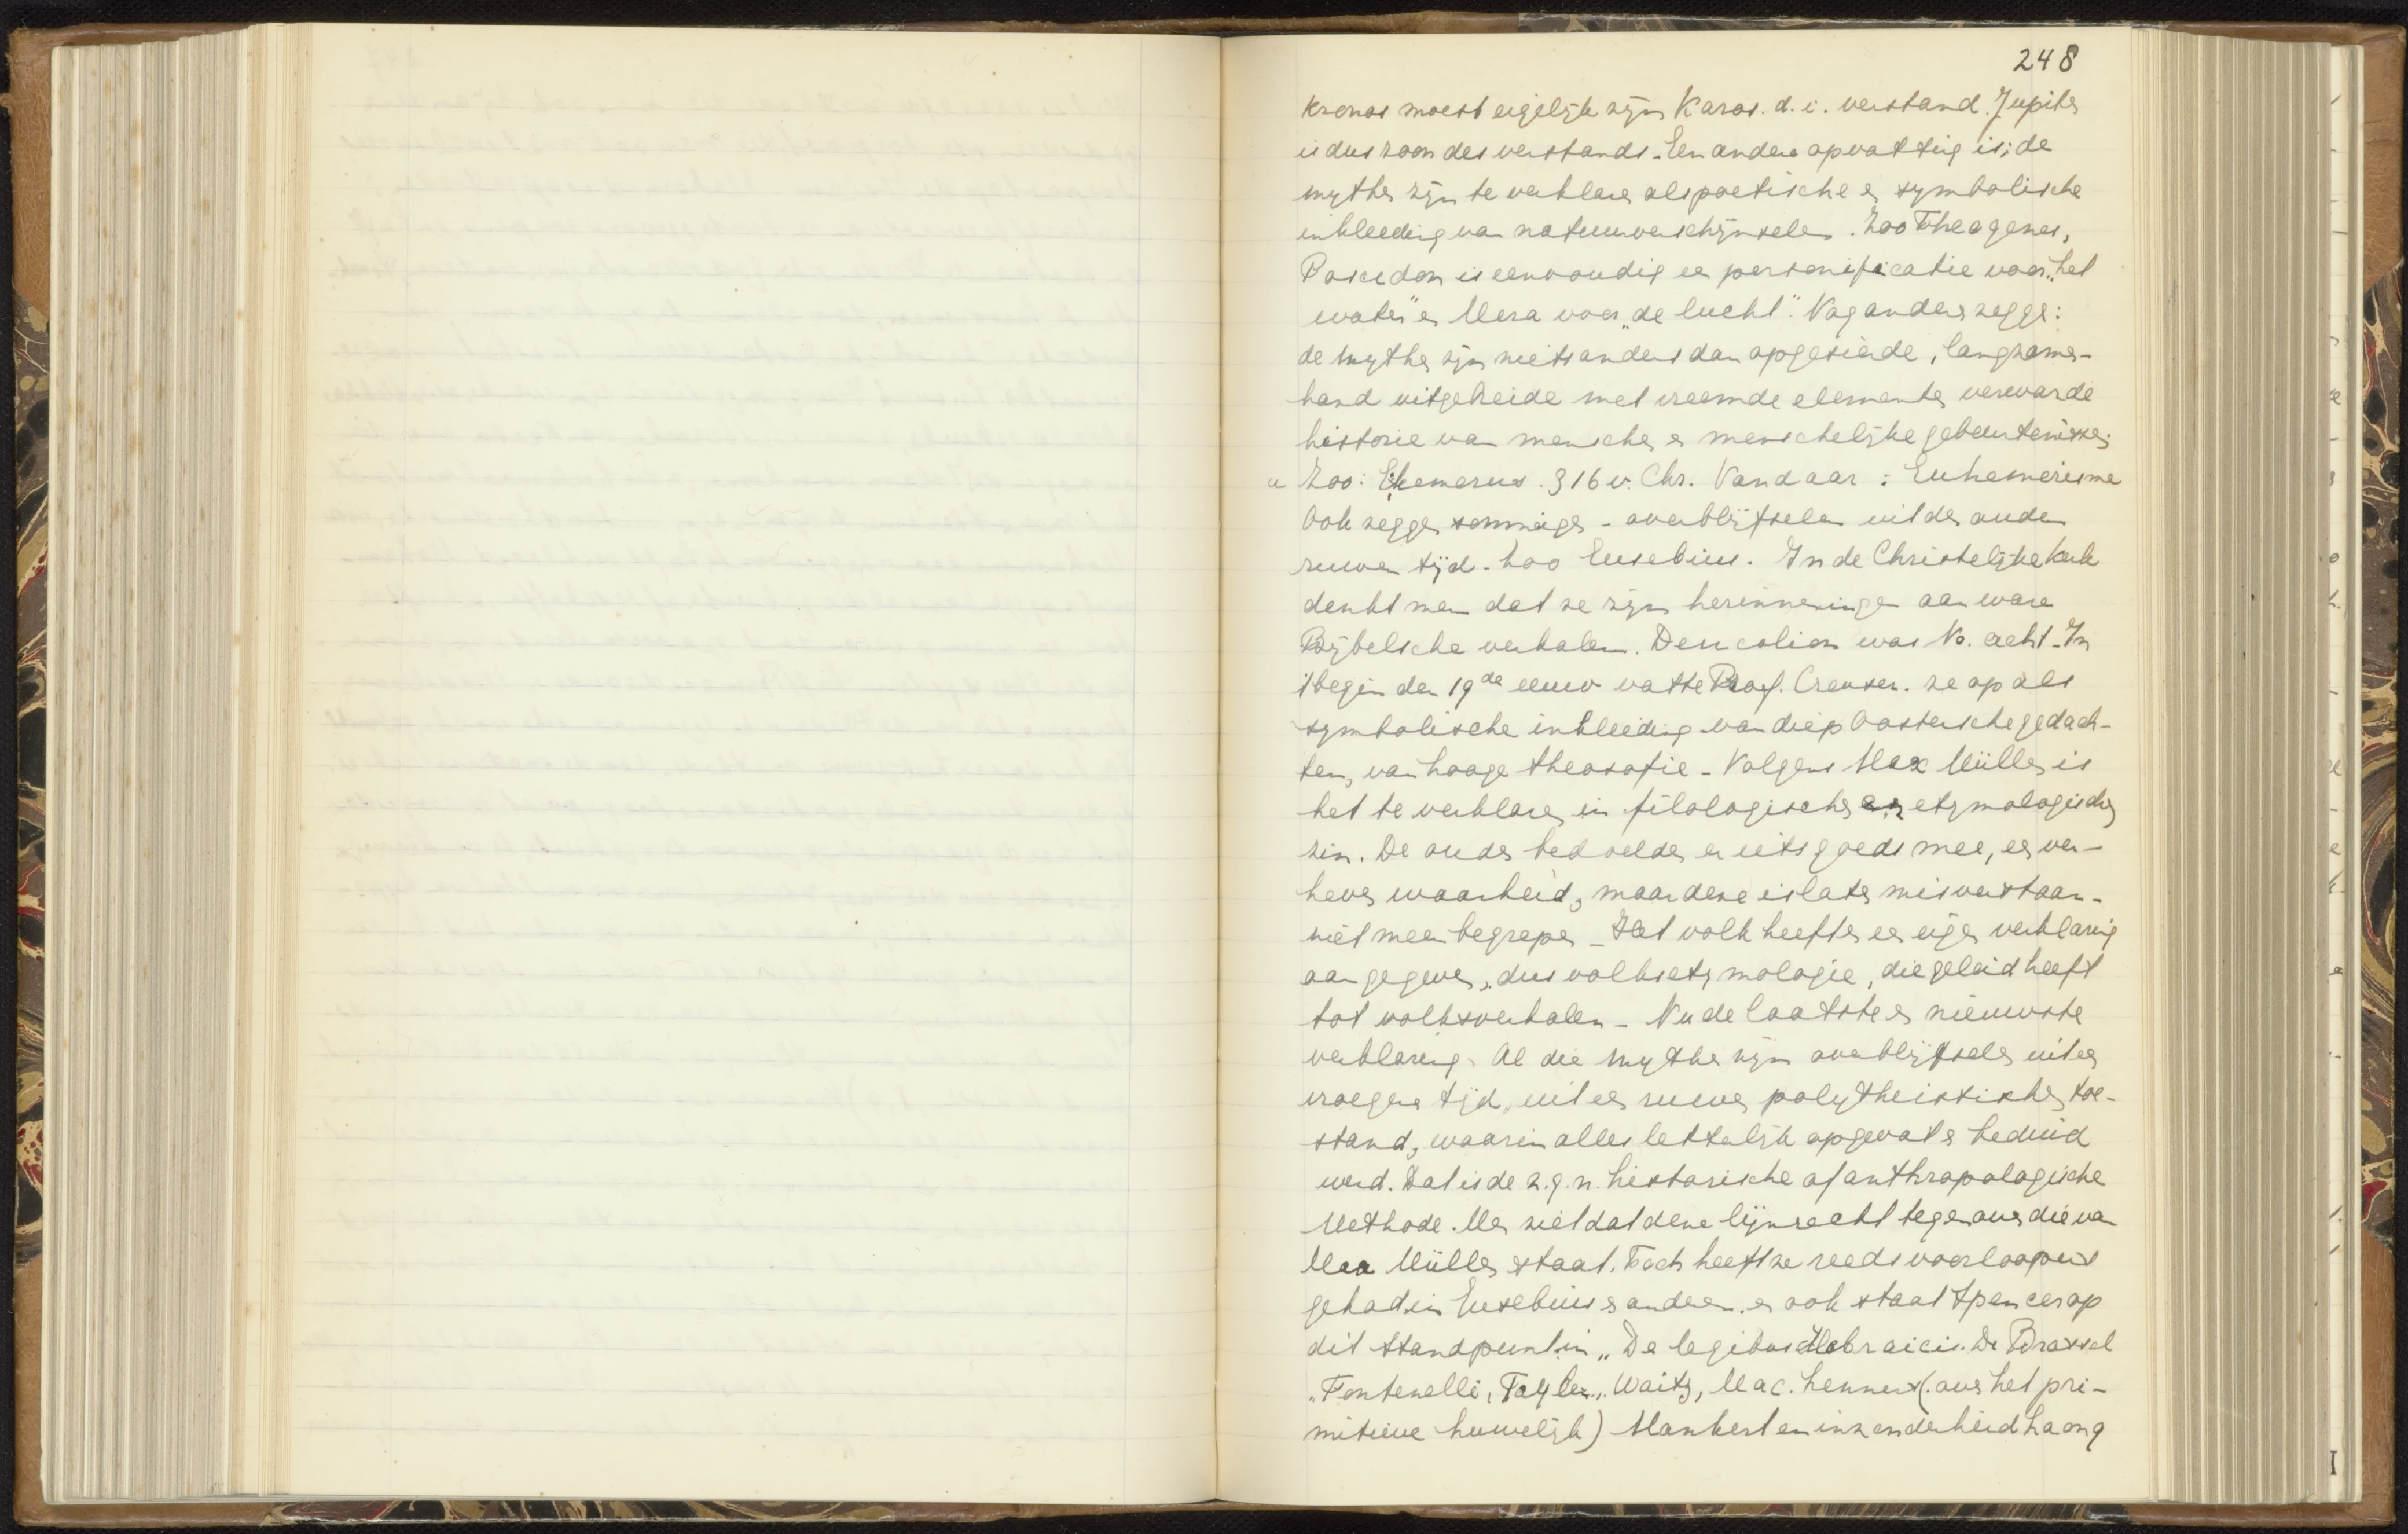 248
Kronos moest eigelijk zijn Karos. d. i. verstand. Jupiter
is dus zoon des verstands. Een andere opvatting is: de
mythen zijn te verklaren als poetische en symbolische
inkleeding van natuurverschijnselen. Zoo Theagenes,
Poseidon is eenvoudig een personificatie voor „het
water" en Hera voor „de lucht". Nog anderen zeggen:
de mythen zijn niets anders dan opgesierde, langzamer-
hand uitgebreide met vreemde elementen verwarde
historie van menschen en menschelijke gebeurtenissen;
u Zoo: Ehemerus. 316 v. Chr. Vandaar: Euhemerisme
Ook zeggen sommigen - overblijfselen uit den ouden
ruwen tijd. Zoo Eusebius. In de Christelijke kerk
denkt men dat ze zijn herinneringen aan ware
Bijbelsche verhalen. Deucalion was No. acht. In
't begin der 19de eeuw vatte Prof. Creuzer. ze op als
symbolische inkleeding van diep Oostersche gedach-
ten, van hooge theosofie - Volgens Max Müller is
het te verklaren in filologischen en etymologischen
zin. De ouden bedoelden er iets goeds mee, een ver-
heven waarheid, maar deze is later misverstaan -
niet meer begrepen - Het volk heeft er een eigen verklaring
aan gegeven, dus volksetymologie, die geleid heeft
tot volksverhalen - Nu de laatste en nieuwste
verklaring. Al die mythen zijn overblijfselen uit een
vroegere tijd, uit een ruwen polytheistischen toe-
stand, waarin alles letterlijk opgevat en beduid
werd. Dat is de z.g.n. historische of anthropologische
Methode. Men ziet dat deze lijnrecht tegenover die van
Max Müller staat. Toch heeft ze reeds voorloopers
gehad in Eusebius en anderen. en ook staat Spencer op
dit standpunt in „De legibus Hebraicis. De Brassel
„Fontenelli, Tayler„ Waitz, Mac. Lennert (over het pri-
mitieve huwelijk) Mankert en inzonderheid Laong